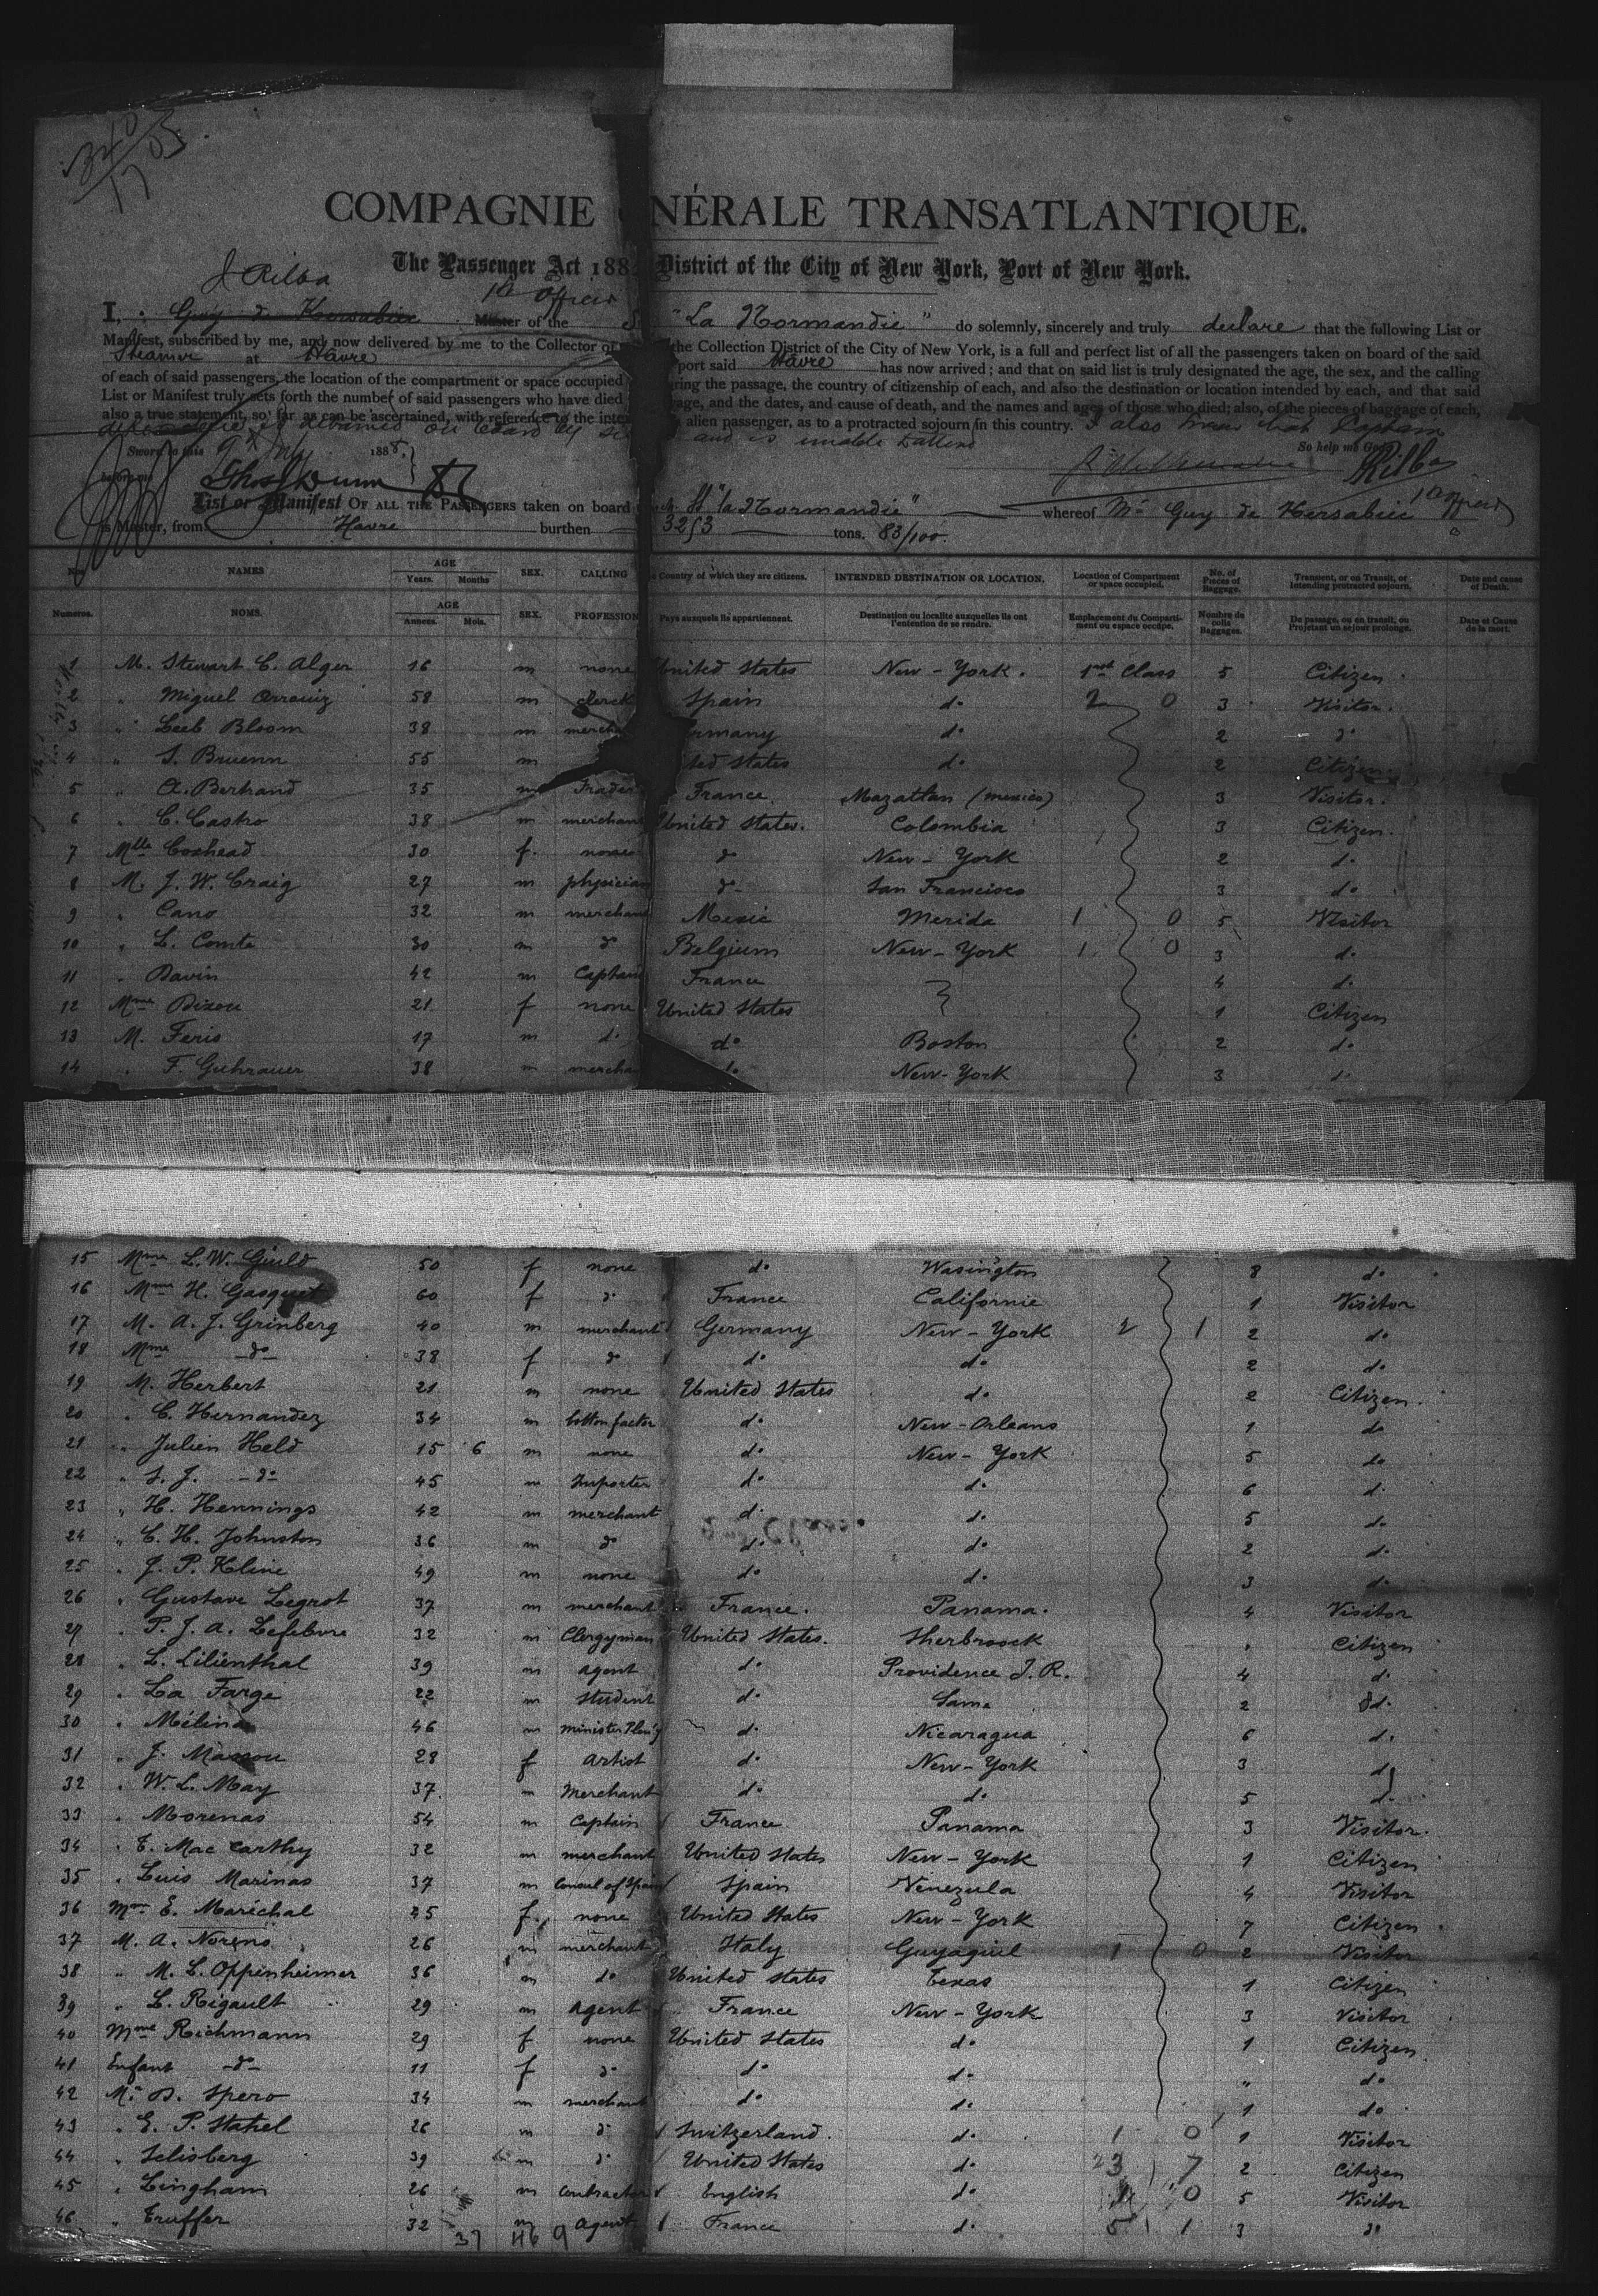 340
17 03
COMPAGNIE NÉRALE TRANSATLANTIQUE.
The Passenger Act 188 District of the City of New York, Port of New York.
J Rilba
1st Officer
I, Guy de Kersabiec Master of the "La Normandie" do solemnly, sincerely and truly declare that the following List or
Manifest, subscribed by me, and now delivered by me to the Collector of the Collection District of the City of New York, is a full and perfect list of all the passengers taken on board of the said
Steamer at Havre port said Havre has now arrived; and that on said list is truly designated the age, the sex, and the calling
of each of said passengers, the location of the compartment or space occupied ring the passage, the country of citizenship of each, and also the destination or location intended by each, and that said
List or Manifest truly sets forth the number of said passengers who have died age, and the dates, and cause of death, and the names and ages of those who died; also, of the pieces of baggage of each,
also a true statement, so far as can be ascertained, with reference to the inte alien passenger, as to a protracted sojourn in this country. I also that Captain
on board and is unable to attend So help me God
Sworn to this 9th July 1888.
before me Thos Dunn Rilba
List or Manifest OF ALL THE PASSENGERS taken on board "la Normandie" whereof Mr Guy de Kersabiec 1st officer
is Master, from Havre burthen 3253 tons. 83/100.
NAMES AGE Years. Months SEX. CALLING Country of which they are citizens. INTENDED DESTINATION OR LOCATION. Location of Compartment or space occupied. No. of Pieces of Baggage. Transient, or on Transit, or Intending protracted sojourn. Date and cause of Death.
Numeros. NOMS. AGE Années. Mois. SEX. PROFESSION Pays auxquels ils appartiennent. Destination ou localité auxquelles ils ont l'entention de se rendre. Emplacement du Compartiment ou espace occupe. Nombre de colis Baggages. De passage, ou en transit, ou Projetant un sejour prolonge. Date et Cause de la mort.
1 M. Stewart C. Alger 16 m none United States New-York. 1st Class 5 Citizen
2 " Miguel Arrouiz 58 m clerck Spain do 2 0 3 Visitor.
3 " Leeb Bloom 38 m mercha rmany do 2 do
4 " S. Bruenn 55 m ted States do 2 Citizen
5 " A. Bertrand 35 m Trader France Mazatlan (mexico) 3 Visitor.
6 " C. Castro 38 m merchant United States. Colombia 3 Citizen.
7 Mlle Coxhead 30 f. none do New-York 2 do
8 M. J. W. Craig 27 m physician do San Francisco 3 do
9 " Cano 32 m merchant Mexic Merida 1 0 5 Visitor
10 " L. Comte 30 m do Belgium New-York 1 0 3 do
11 " Davin 42 m Captain France 4 do
12 Mme Dixon 21 f none United States 1 Citizen
13 M. Feris 17 m do do Boston 2 do
14 " F. Guhrauer 38 m mercha do New-York 3 do
15 Mme L. W. Guild 50 f none do Wasington 8 do
16 Mme H. Gasquet 60 f do France Californie 1 Visitor
17 M. A. J. Grinberg 40 m merchant Germany New-York 2 1 2 do
18 Mme do 38 f do do do 2 do
19 M. Herbert 21 m none United States do 2 Citizen.
20 " C. Hernandez 34 m Cotton factor do New-Orleans 1 do
21 " Julien Held 15 6 m none do New-York 5 do
22 " S. J. do 45 m Importer do do 6 do
23 " H. Hennings 42 m merchant do do 5 do
24 " C. H. Johnston 36 m do do do 2 do
25 " J. P. Kline 49 m none do do 3 do
26 " Gustave Legrot 37 m merchant France. Panama. 4 Visitor
27 " P. J. A. Lefebvre 32 m Clergyman United States. Sherbroock " Citizen
28 " L. Lilienthal 39 m agent do Providence J. R. 4 do
29 " La Farge 22 m student do Same 2 do
30 " Mélina 46 m minister Plen'y do Nicaragua 6 do
31 " J. Massou 28 f artist do New-York 3 do
32 " W. L. May 37 m Merchant do do 5 do
33 " Morenas 54 m Captain France Panama 3 Visitor.
34 " T. Mac Carthy 32 m merchant United States New-York 1 Citizen
35 " Luis Marinas 37 m Consul of Spain Spain Venezula 4 Visitor
36 Mme E. Maréchal 45 f. none United States New-York 7 Citizen
37 M. A. Noreno 26 m merchant Italy Guyaquil 1 0 2 Visitor
38 " M. L. Oppenheimer 36 m do United States Texas 1 Citizen
39 " L. Rigault 29 m agent France New-York 3 Visitor
40 Mme Richmann 29 f none United States do 1 Citizen
41 Enfant do 11 f do do do " do
42 M. D. Spero 34 m merchant do do 1 do
43 " E. P. Stahel 26 m do Switzerland. do 1 0 1 Visitor
44 " Selisberg 39 m do United States do 23 7 2 Citizen
45 " Lingham 26 m contractor English do 0 5 Visitor
46 " Truffer 32 m agent France do 5 1 3 do
37 46 9